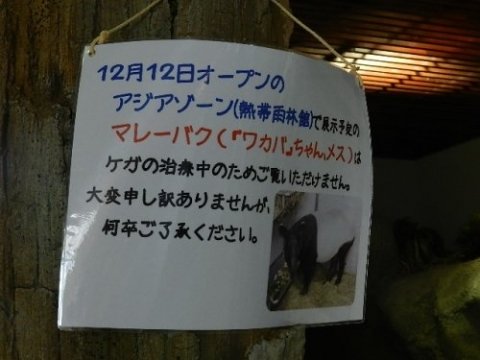 12月12日オープンの
アジアゾーン(熱帯雨林館)で展示予定の
マレーバク(『ワカバ』ちゃん、メス)は
ケガの治療中のためご覧いただけません。
大変申し訳ありませんが、
何卒ご了承ください。